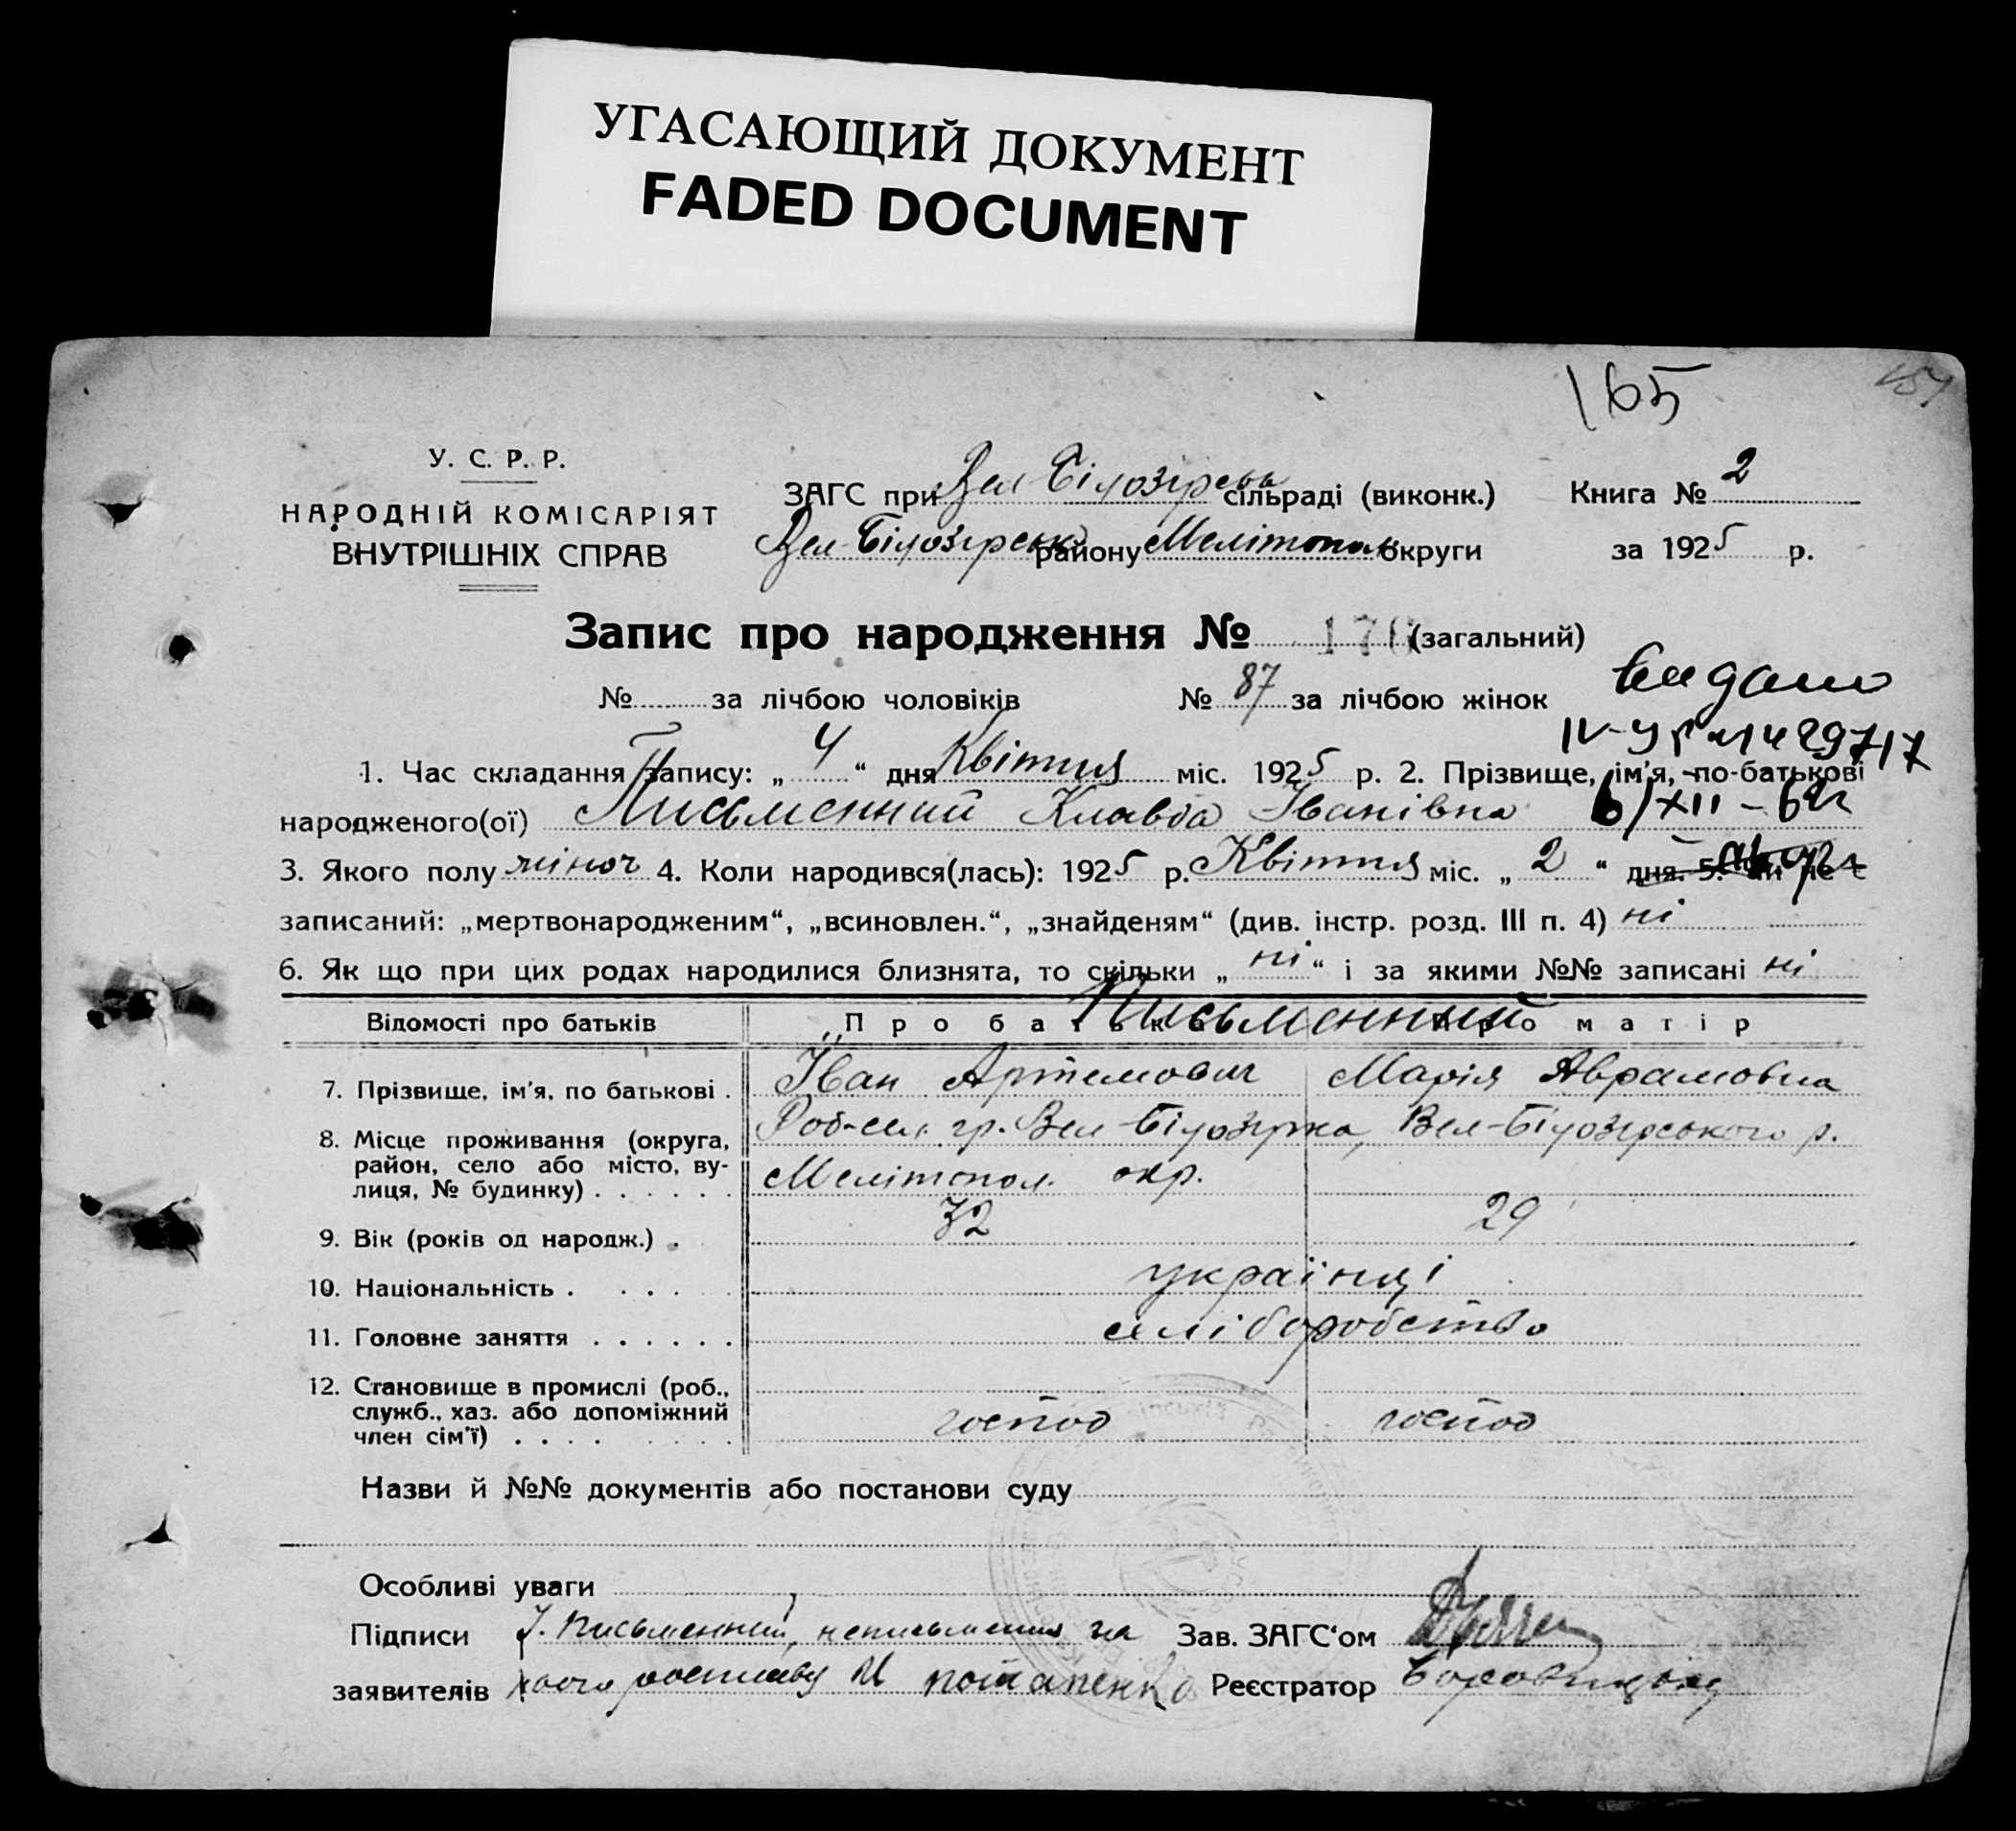 УГАСАЮЩИЙ ДОКУМЕНТ
FADED DOCUMENT
165
У. С. Р. Р.
НАРОДНІЙ КОМІСАРІЯТ
ВНУТРІШНІХ СПРАВ
ЗАГС при Вел Білозірська сільраді (виконк.)
Вел-Білозірськ району Мелітополь округи
Книга № 2
за 1925 р.
Запис про народження № 170 (загальний)
№ за лічбою чоловіків № 87 за лічбою жінок
видано
1. Час складання запису: „ 4 “ дня Квітня міс. 1925 р. 2. Прізвище, ім'я, по-батькові
народженого(ої) Письменний Клавда Іванівна 6/XII-62
3. Якого полу жіноч 4. Коли народився(лась): 1925 р. Квітня міс. „ 2 “ дня. 5.
записаний: „мертвонародженим“, „всиновлен.“, „знайденям“ (див. інстр. розд. III п. 4) ні
6. Як що при цих родах народилися близнята, то скільки „ ні “ і за якими №№ записані ні
Відомості про батьків Про батька Про матір
Письменний
7. Прізвище, ім'я, по батькові . Іван Артемович Марія Аврамовна
8. Місце проживання (округа, район, село або місто, вулиця, № будинку) . . . . . . гр. Вел-Білозірка, Вел-Білозірського р.
Мелітопол. окр.
9. Вік (років од народж.) . 32 29
10. Національність . . . . . українці
11. Головне заняття . . . . . . хліборобство
12. Становище в промислі (роб., служб., хаз. або допоміжний член сім'ї) . . . . господ господ
Назви й №№ документів або постанови суду
Особливі уваги
Підписи І. Письменний, неписьменна за Зав. ЗАГС‘ом
заявителів М Потапенко Реєстратор